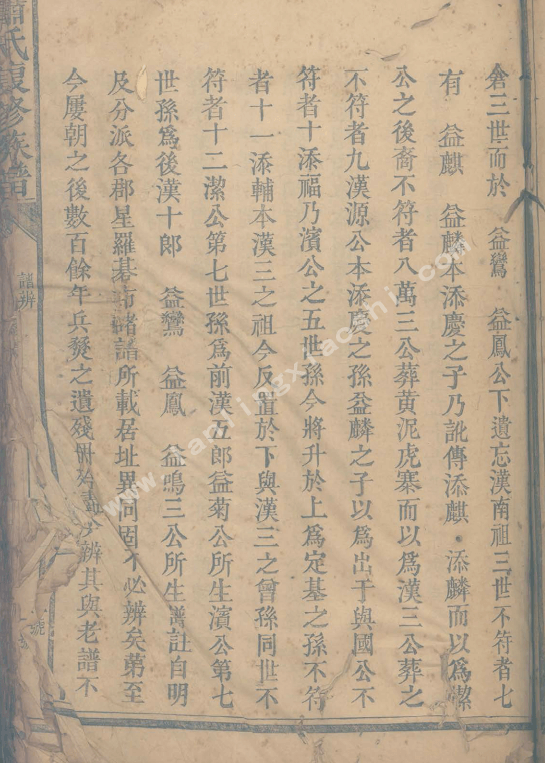 倉三世而於 益鸞 益鳳公下遺忘漢南祖三世不符者七
有 益麒 益麟本添慶之子乃訛傳添麒 添麟而以爲潔
公之後裔不符者八萬三公葬黃泥虎寨而以爲漢三公葬之
不符者九漢源公本添慶之孫益麟之子以爲出于與國公不
符者十添福乃濱公之五世孫今將升於上爲定基之孫不符
者十一添輔本漢三之祖今反置於下與漢三之曾孫同世不
符者十二潔公第七世孫爲前漢五郎益菊公所生濱公第七
世孫爲後漢十郎 益鸞 益鳳 益鳴三公所生譜註自明
及分派各郡星羅碁布諸譜所載居址異同固不必辨矣苐至
今屢朝之後數百餘年兵燹之遺殘 辨其與老譜不
氏復修族譜
譜辨
www.jiangxijiacanji.com